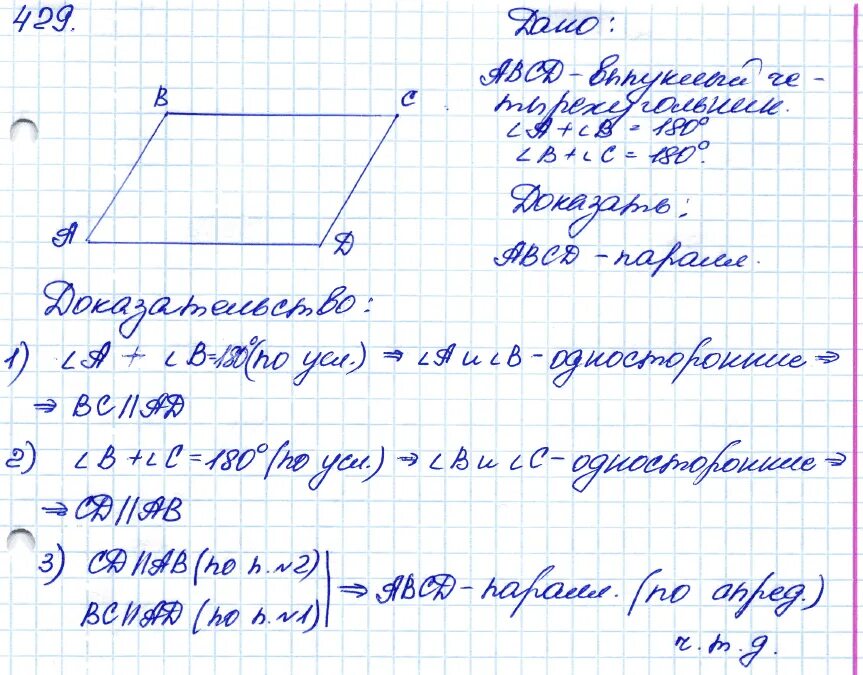 429.
Дано:
ABCD - выпуклый че-
тырехугольник.
∠A + ∠B = 180°
∠B + ∠C = 180°.
B
C
A
D
Доказать:
ABCD - паралл.
Доказательство:
1) ∠A + ∠B = 180° (по усл.) ⇒ ∠A и ∠B - односторонние ⇒
⇒ BC || AD
2) ∠B + ∠C = 180° (по усл.) ⇒ ∠B и ∠C - односторонние ⇒
⇒ CD || AB
3) CD || AB (по п. №2)
BC || AD (по п. №1)
⇒ ABCD - паралл. (по опред.)
ч. т. д.